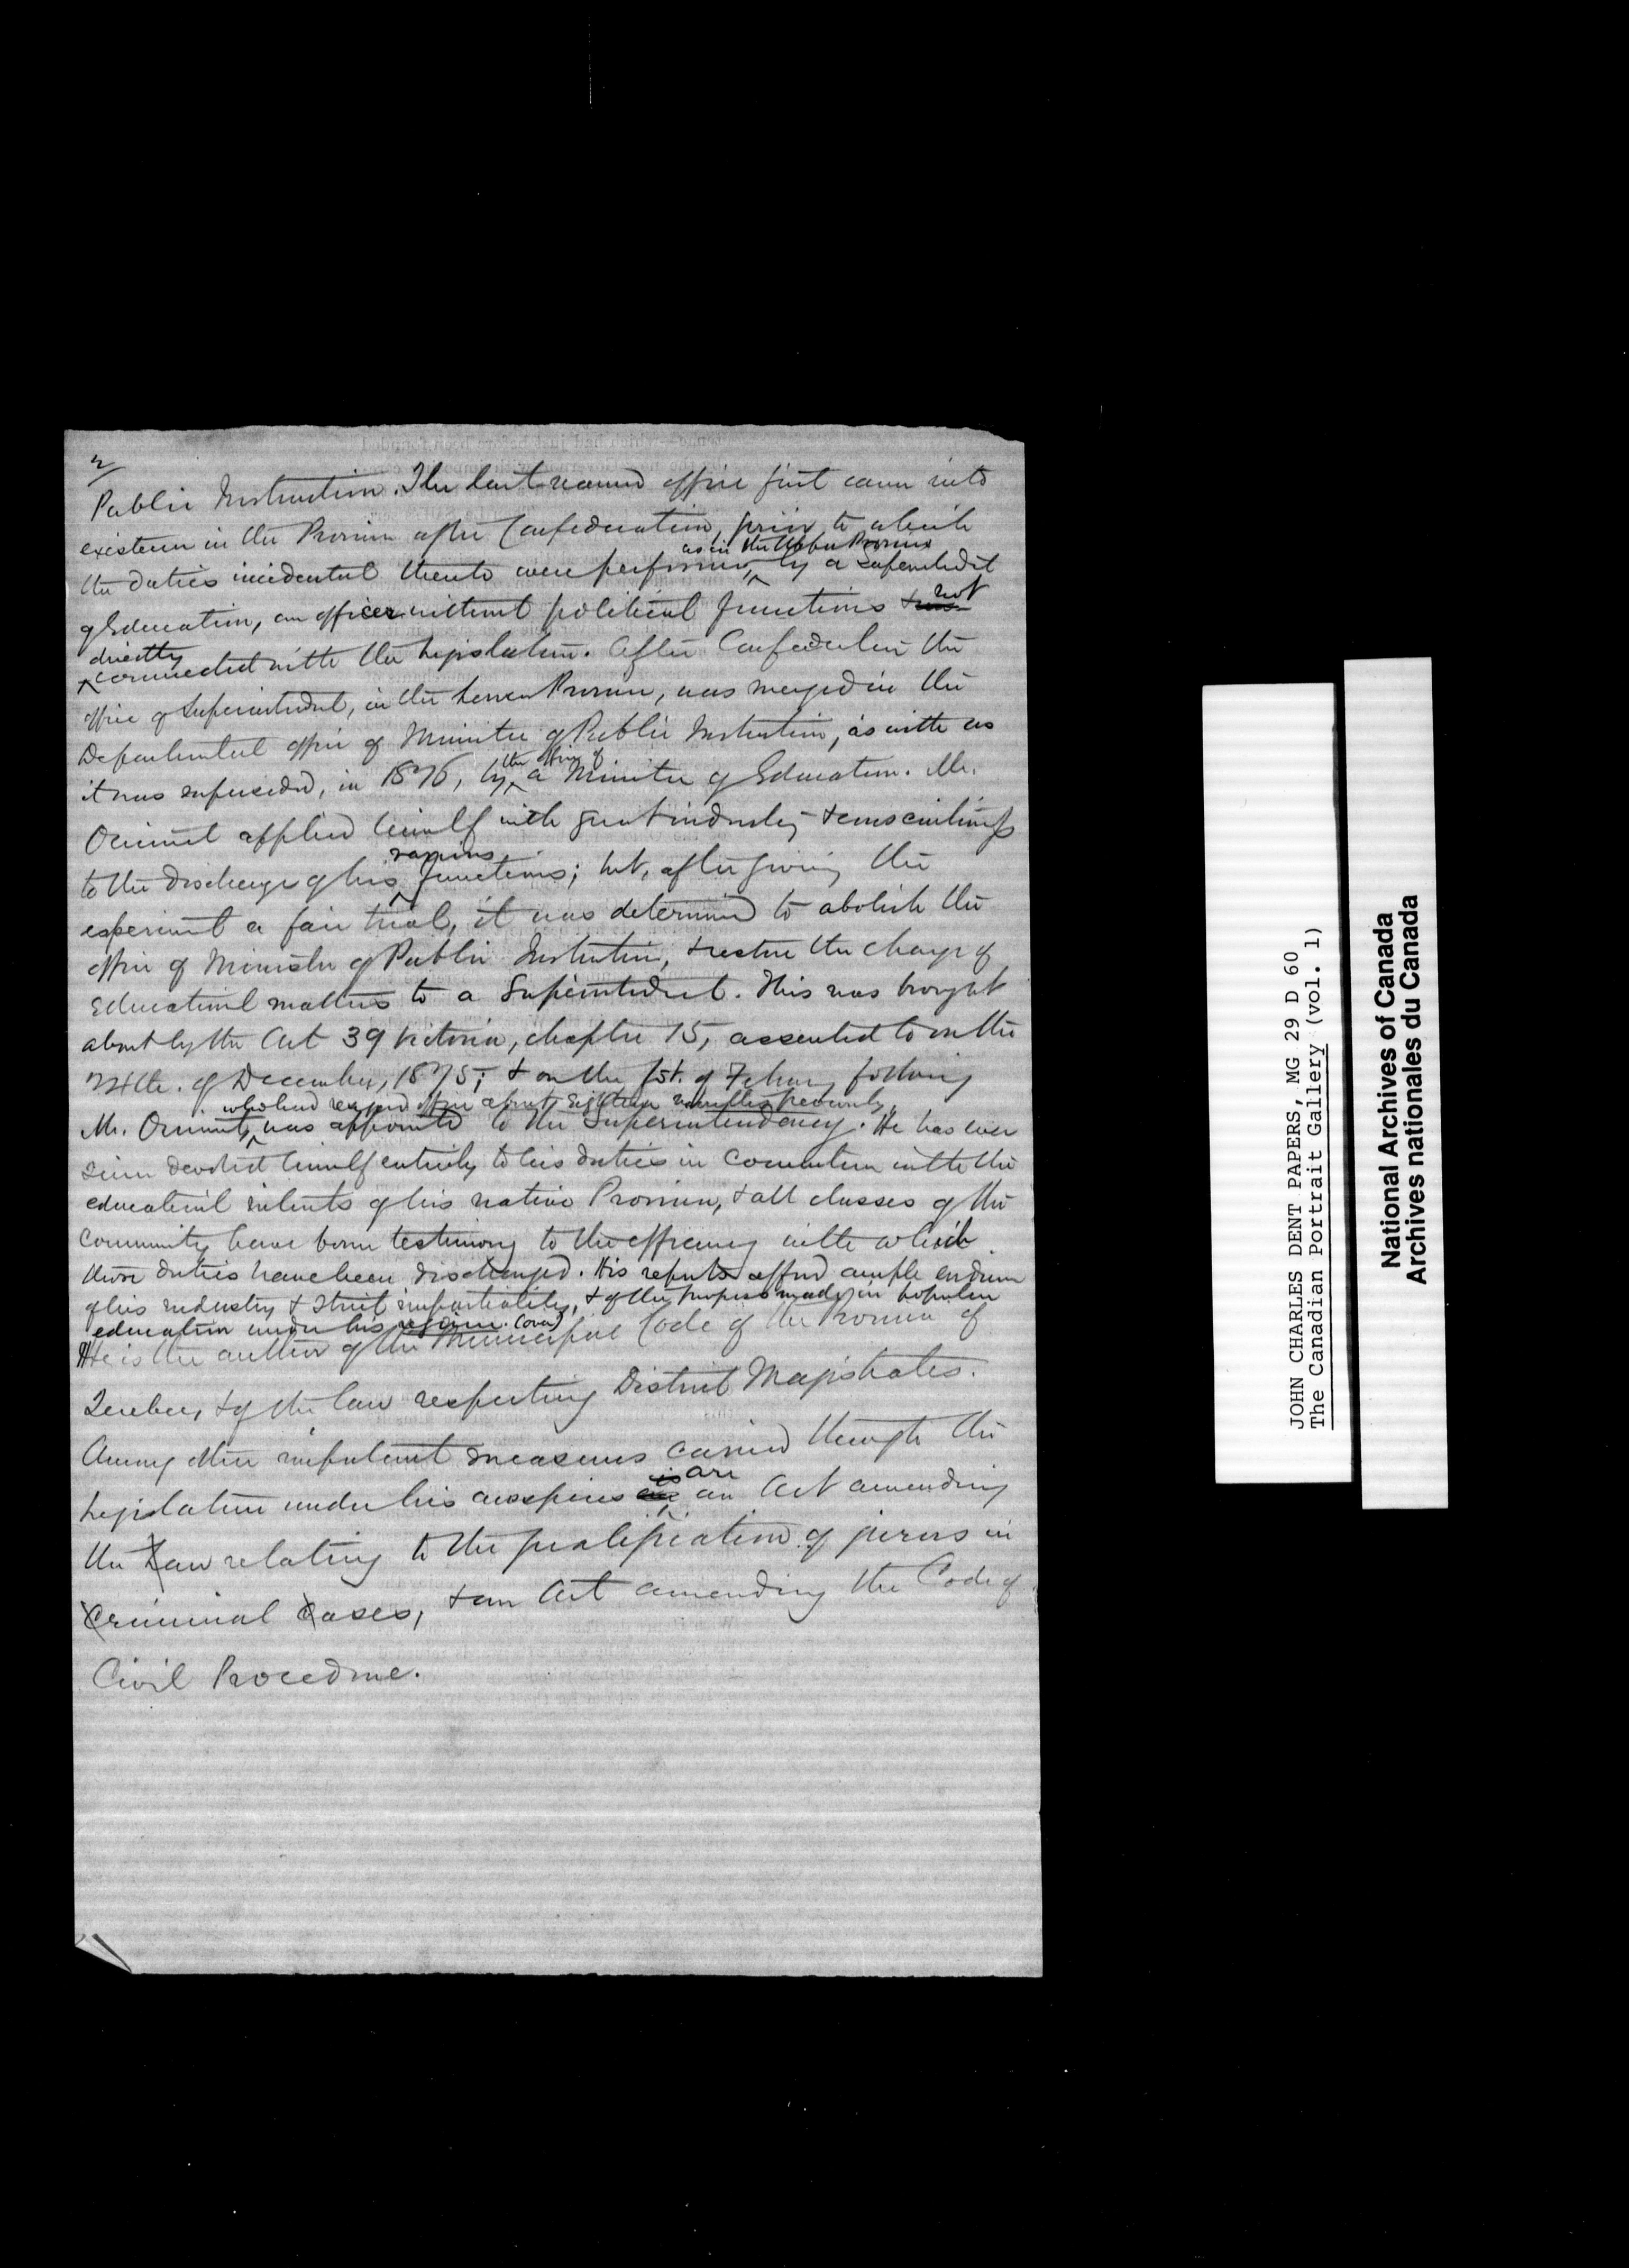 2/
Public Instruction. The last-named office first came into
existence in the Province after Confederation, prior to which
as in the Upper Province
the duties incidental thereto were performed, by a Superintendt
of Education, an officer without political functions & not
directly
connected with the Legislature. After Confederation the
office of Superintendent, in the Lower Province, was merged in the
Departmental office of Minister of Public Instruction, as with us
the office of
it was superseded, in 1876, by a Minister of Education. Mr.
Ouimet applied himself with great industry & conscientiousness
various
to the discharge of his functions; but, after giving the
experiment a fair trial, it was determined to abolish the
office of Minister of Public Instruction, & restore the charge of
Educational matters to a Superintendent. This was brought
about by the Act 39 Victoria, chapter 15, assented to on the
24th. of December, 1875; & on the 1st. of February following
who had resigned office about eighteen months previously,
Mr. Ouimet, was appointed to the Superintendency. He has ever
since devoted himself entirely to his duties in connection with the
educational interests of his native Province, & all classes of the
community have borne testimony to the efficiency with which
those duties have been discharged. His reports afford ample evidence
of his industry & strict impartiality, & of the progress made in popular
education under his regime. (over)
He is the author of the Municipal Code of the Province of
Quebec, & of the law respecting District Magistrates.
Among other important measures carried through the
is are
Legislature under his auspices an Act amending
the Law relating to the qualification of jurors in
Criminal Cases, & an Act amending the Code of
Civil Procedure.
JOHN CHARLES DENT PAPERS, MG 29 D 60
The Canadian Portrait Gallery (vol. 1)
National Archives of Canada
Archives nationales du Canada